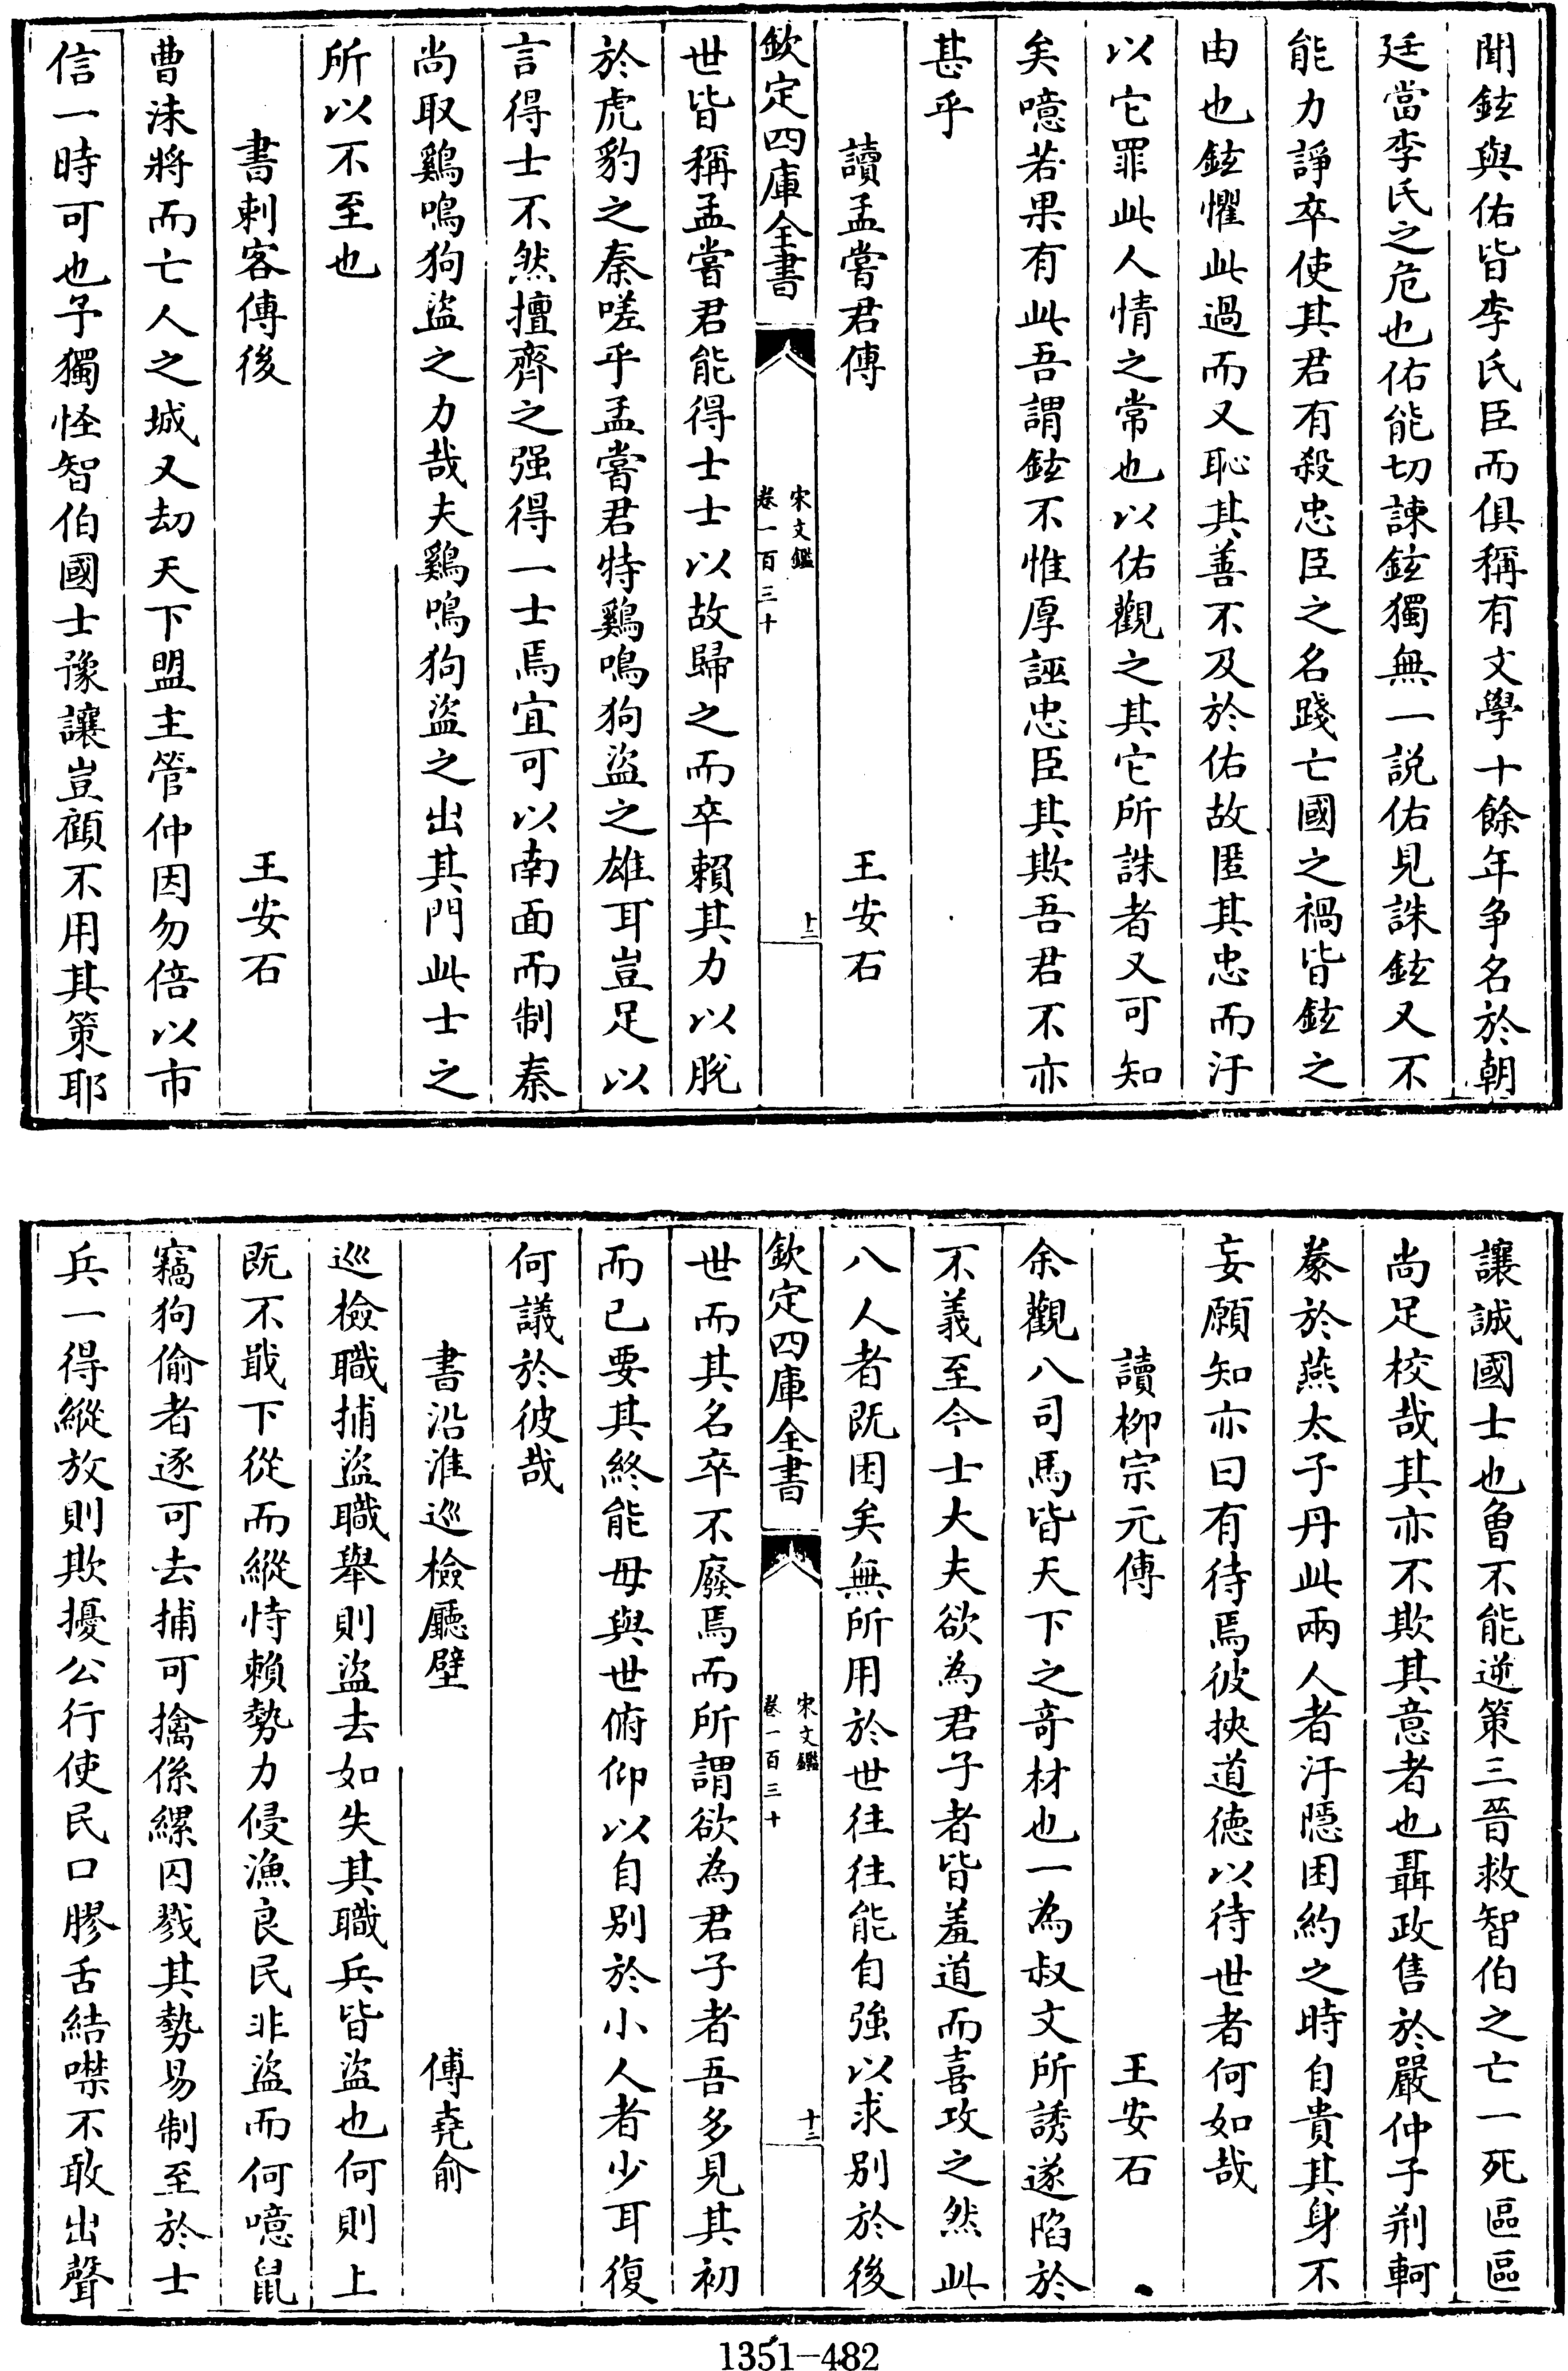 聞鉉與佑皆李氏臣而俱稱有文學十餘年争名於朝
廷當李氏之危也佑能切諫鉉獨無一説佑見誅鉉又不
能力諍卒使其君有殺忠臣之名踐亡國之禍皆鉉之
由也鉉懼此過而又恥其善不及於佑故匿其忠而汙
以它罪此人情之常也以佑觀之其它所誅者又可知
矣噫若果有此吾謂鉉不惟厚誣忠臣其欺吾君不亦
甚乎
讀孟嘗君傳 王安石
欽定四庫全書 宋文鑑 卷一百三十 十二
世皆稱孟嘗君能得士士以故歸之而卒賴其力以脫
於虎豹之秦嗟乎孟嘗君特鷄鳴狗盜之雄耳豈足以
言得士不然擅齊之强得一士焉宜可以南面而制秦
尚取鷄鳴狗盜之力哉夫鷄鳴狗盜之出其門此士之
所以不至也
書刺客傳後 王安石
曹沬將而亡人之城又劫天下盟主管仲因勿倍以市
信一時可也予獨怪智伯國士豫讓豈顧不用其策耶
讓誠國士也曾不能逆策三晉救智伯之亡一死區區
尚足校哉其亦不欺其意者也聶政售於嚴仲子荆軻
豢於燕太子丹此兩人者汙隱困約之時自貴其身不
妄願知亦曰有待焉彼挾道德以待世者何如哉
讀柳宗元傳 王安石
余觀八司馬皆天下之竒材也一為叔文所誘遂陷於
不義至今士大夫欲為君子者皆羞道而喜攻之然此
八人者既困矣無所用於世往往能自強以求别於後
欽定四庫全書 宋文鑑 卷一百三十 十三
世而其名卒不廢焉而所謂欲為君子者吾多見其初
而已要其終能毋與世俯仰以自别於小人者少耳復
何議於彼哉
書沿淮巡檢廳壁 傅堯俞
巡檢職捕盜職舉則盜去如失其職兵皆盜也何則上
既不戢下從而縱恃賴勢力侵漁良民非盜而何噫鼠
竊狗偷者逐可去捕可擒係縲囚戮其勢易制至於士
兵一得縱放則欺擾公行使民口膠舌結噤不敢出聲
1351-482